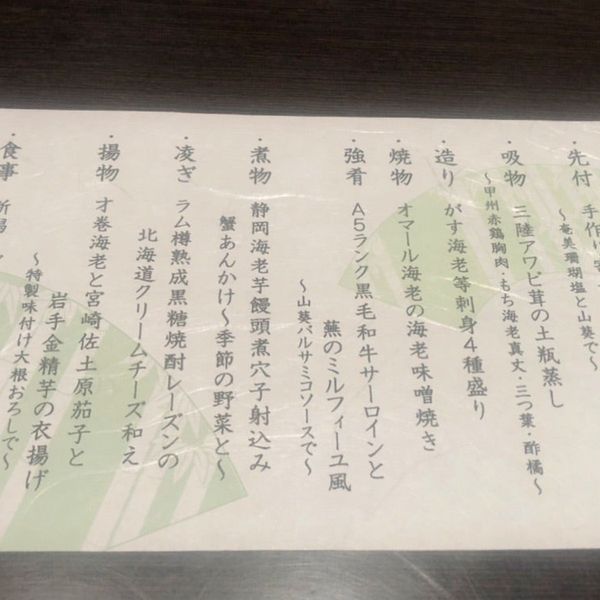 ・先付 手作り寄
～奄美珊瑚塩と山葵で～
・吸物 三陸アワビ茸の土瓶蒸し
～甲州赤鶏胸肉・もち海老真丈・三つ葉・酢橘～
・造り がす海老等刺身４種盛り
・焼物 オマール海老の海老味噌焼き
・強肴 Ａ５ランク黒毛和牛サーロインと
蕪のミルフィーユ風
～山葵バルサミコソースで～
・煮物 静岡海老芋饅頭煮穴子射込み
蟹あんかけ～季節の野菜と～
・凌ぎ ラム樽熟成黒糖焼酎レーズンの
北海道クリームチーズ和え
・揚物 才巻海老と宮崎佐土原茄子と
岩手金精芋の衣揚げ
～特製味付け大根おろしで～
・食事 新潟